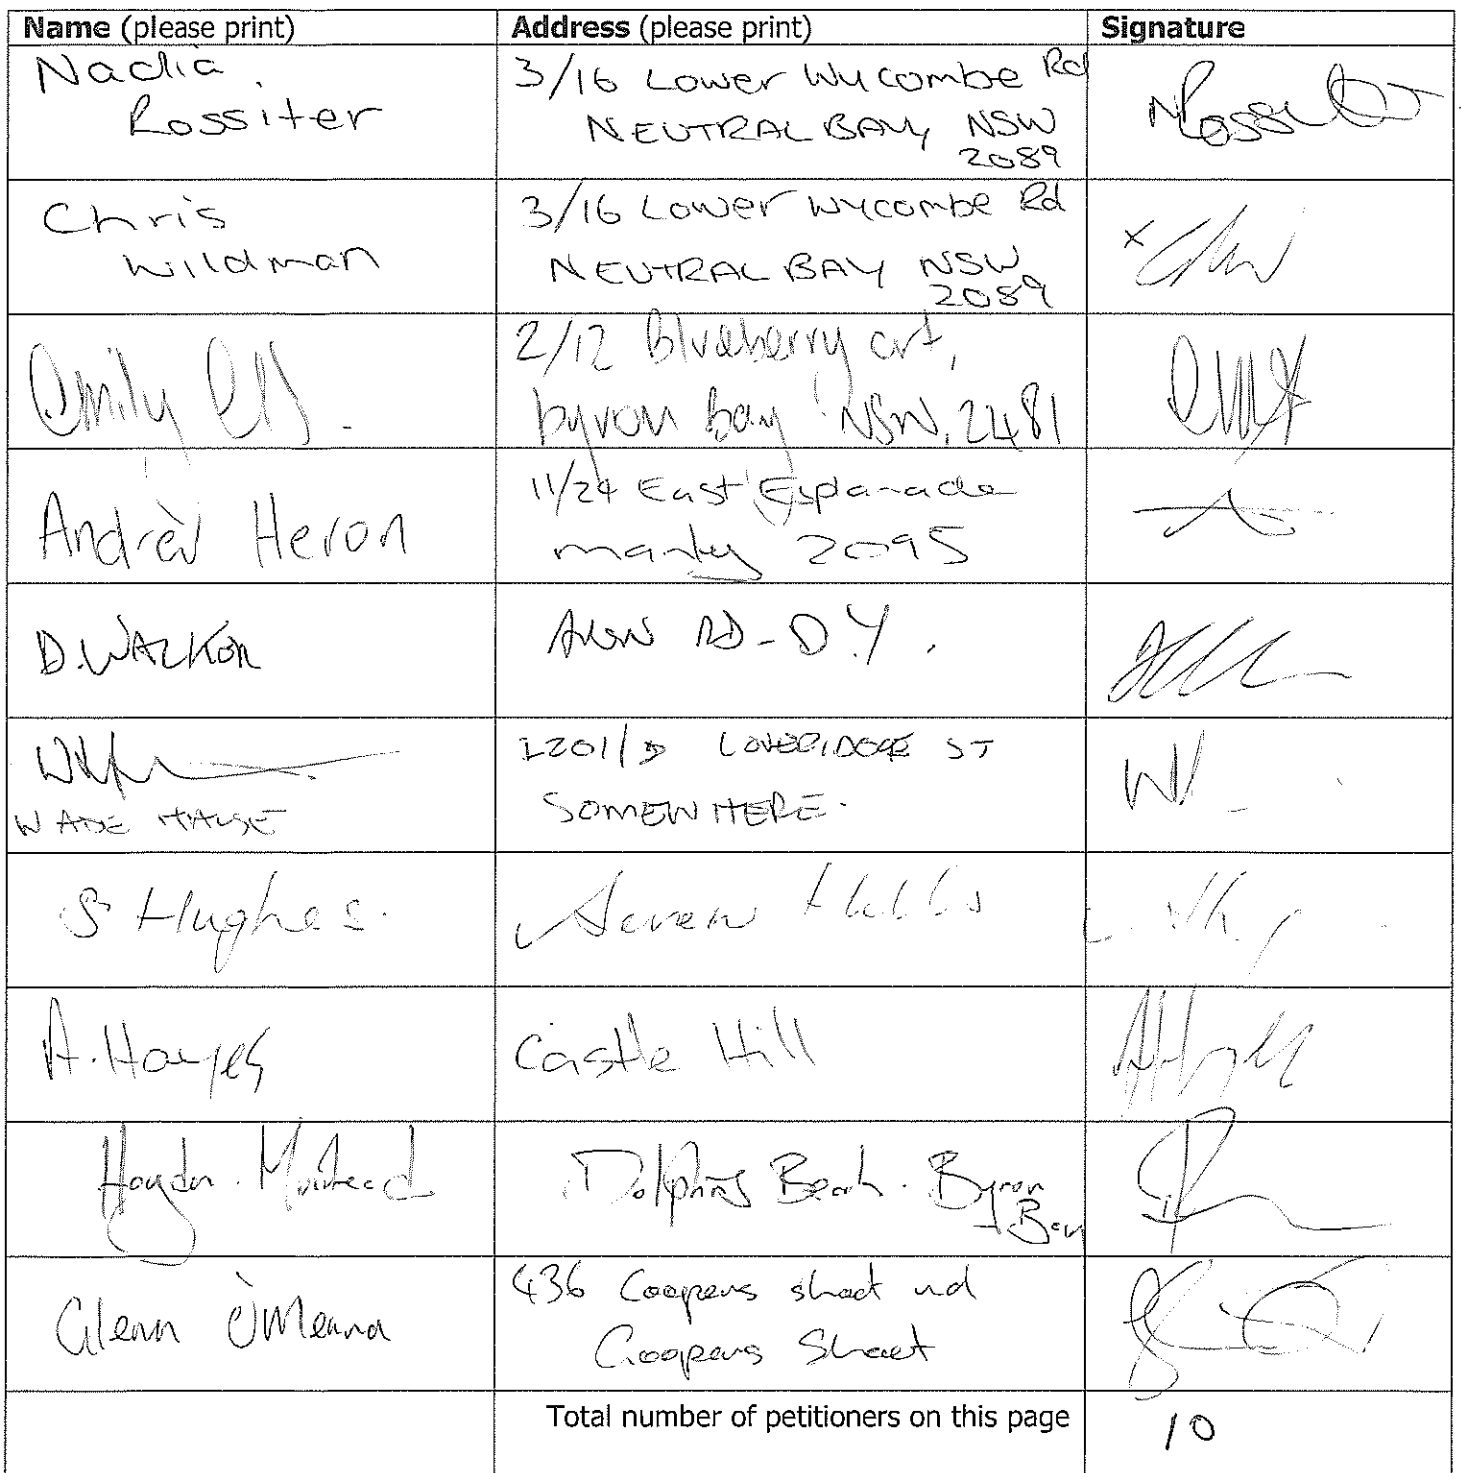 Name (please print) Address (please print) Signature
Nadia
Rossiter
3/16 Lower Wycombe Rd
NEUTRAL BAY NSW
2089
NRossiter
Chris
Wildman
3/16 Lower Wycombe Rd
NEUTRAL BAY NSW
2089
x
Emily
2/12 Blueberry crt,
byron bay NSW, 2481
Andrew Heron
11/24 East Esplanade
manly 2095
D. WALKER
RD - D.Y.
WADE
1201/ ST
SOMEWHERE.
S Hughes.
Seven Hills
A. Hayes
Castle Hill
Haydn. Muirhead
Dolphins Beach. Byron
Bay
Glenn O'Meara
436 Coopers shoot rd
Coopers Shoot
Total number of petitioners on this page 10